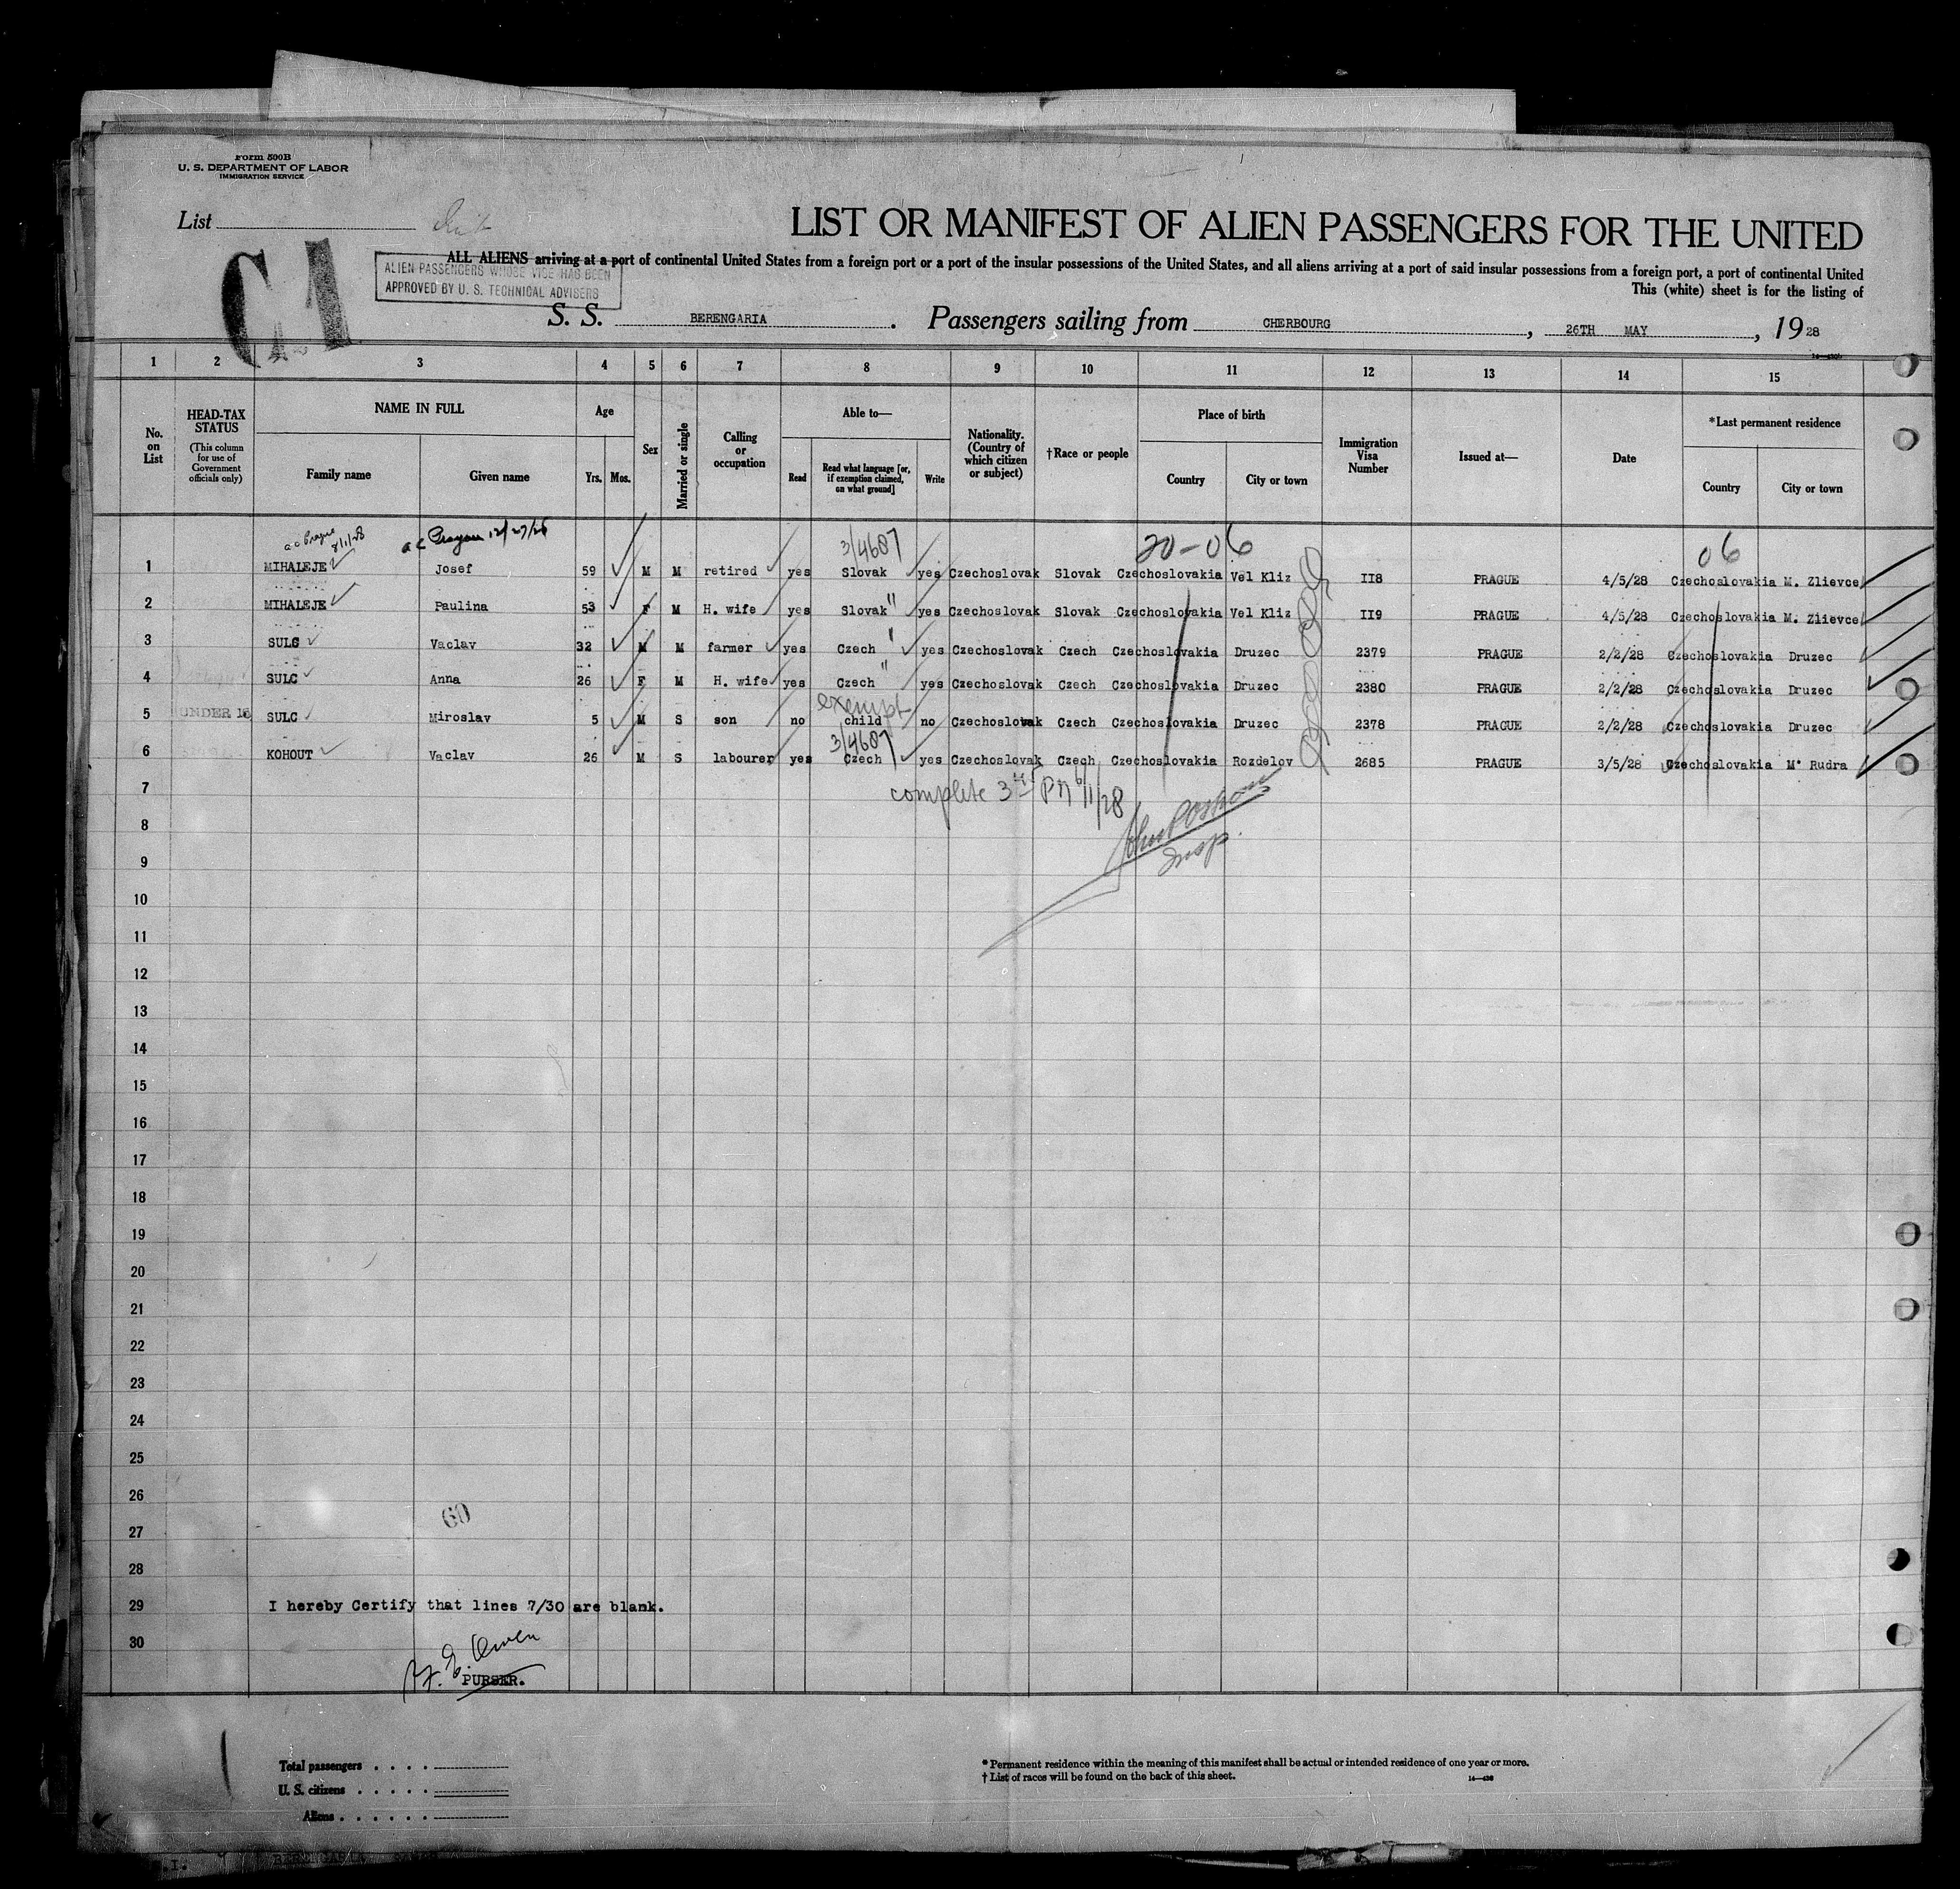 Form 500B
U. S. DEPARTMENT OF LABOR
IMMIGRATION SERVICE
List
LIST OR MANIFEST OF ALIEN PASSENGERS FOR THE UNITED
C1
ALL ALIENS arriving at a port of continental United States from a foreign port or a port of the insular possessions of the United States, and all aliens arriving at a port of said insular possessions from a foreign port, a port of continental United
ALIEN PASSENGERS WHOSE VICE HAS BEEN
APPROVED BY U. S. TECHNICAL ADVISERS
This (white) sheet is for the listing of
S. S. BERENGARIA . Passengers sailing from CHERBOURG , 26TH MAY , 19 28
1 2 3 4 5 6 7 8 9 10 11 12 13 14 15
No. on List
HEAD-TAX STATUS (This column for use of Government officials only)
NAME IN FULL Family name Given name
Age Yrs. Mos.
Sex
Married or single
Calling or occupation
Able to— Read Read what language [or, if exemption claimed, on what ground] Write
Nationality. (Country of which citizen or subject)
†Race or people
Place of birth Country City or town
Immigration Visa Number
Issued at—
Date
*Last permanent residence Country City or town
ac Prague 8/1/28 ac 12/27/28 3/4687 20-06 06
1 MIHALEJE Josef 59 M M retired yes Slovak yes Czechoslovak Slovak Czechoslovakia Vel Kliz II8 PRAGUE 4/5/28 Czechoslovakia M. Zlievce
2 MIHALEJE Paulina 53 F M H. wife yes Slovak " yes Czechoslovak Slovak Czechoslovakia Vel Kliz II9 PRAGUE 4/5/28 Czechoslovakia M. Zlievce
3 SULC Vaclav 32 M M farmer yes Czech " yes Czechoslovak Czech Czechoslovakia Druzec 2379 PRAGUE 2/2/28 Czechoslovakia Druzec
4 SULC Anna 26 F M H. wife yes Czech " yes Czechoslovak Czech Czechoslovakia Druzec 2380 PRAGUE 2/2/28 Czechoslovakia Druzec
exempt
5 UNDER 16 SULC Miroslav 5 M S son no child no Czechoslovak Czech Czechoslovakia Druzec 2378 PRAGUE 2/2/28 Czechoslovakia Druzec
3/4687
6 KOHOUT Vaclav 26 M S labourer yes Czech yes Czechoslovak Czech Czechoslovakia Rozdelov 2685 PRAGUE 3/5/28 Czechoslovakia M. Rudra
7 complete 3rd PM 6/1/28
8
Insp.
9
10
11
12
13
14
15
16
17
18
19
20
21
22
23
24
25
26
60
27
28
29 I hereby Certify that lines 7/30 are blank.
30
Owen
PURSER.
Total passengers
U. S. citizens
Aliens
* Permanent residence within the meaning of this manifest shall be actual or intended residence of one year or more.
† List of races will be found on the back of this sheet.